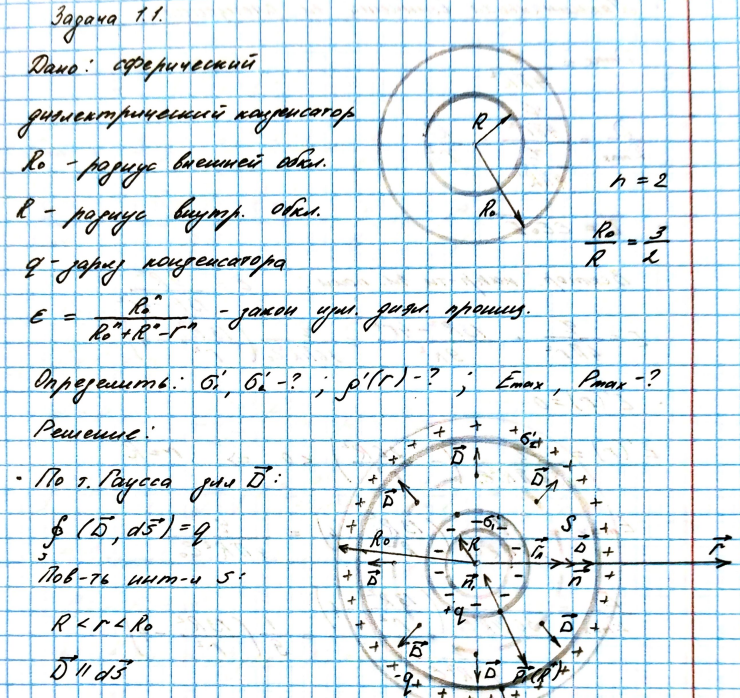 Задача 1.1.
Дано: сферический
диэлектрический конденсатор
R₀ - радиус внешней обкл.
R - радиус внутр. обкл.
q - заряд конденсатора
ε = R₀ⁿ / (R₀ⁿ + Rⁿ - rⁿ) - закон изм. диэл. прониц.
R
R₀
n = 2
R₀/R = 3/2
Определить: σ₁', σ₂' - ? ; ρ'(r) - ? ; Emax, Pmax - ?
Решение:
· По т. Гаусса для D⃗:
∮ (D⃗, dS⃗) = q
S
Пов-ть инт-я S:
R < r < R₀
D⃗ || dS⃗
σ₂'
D⃗
D⃗
D⃗
σ₁'
S
R₀
R
D⃗
r⃗
D⃗
n⃗₁
n⃗
+q
D⃗
D⃗
D⃗
-q